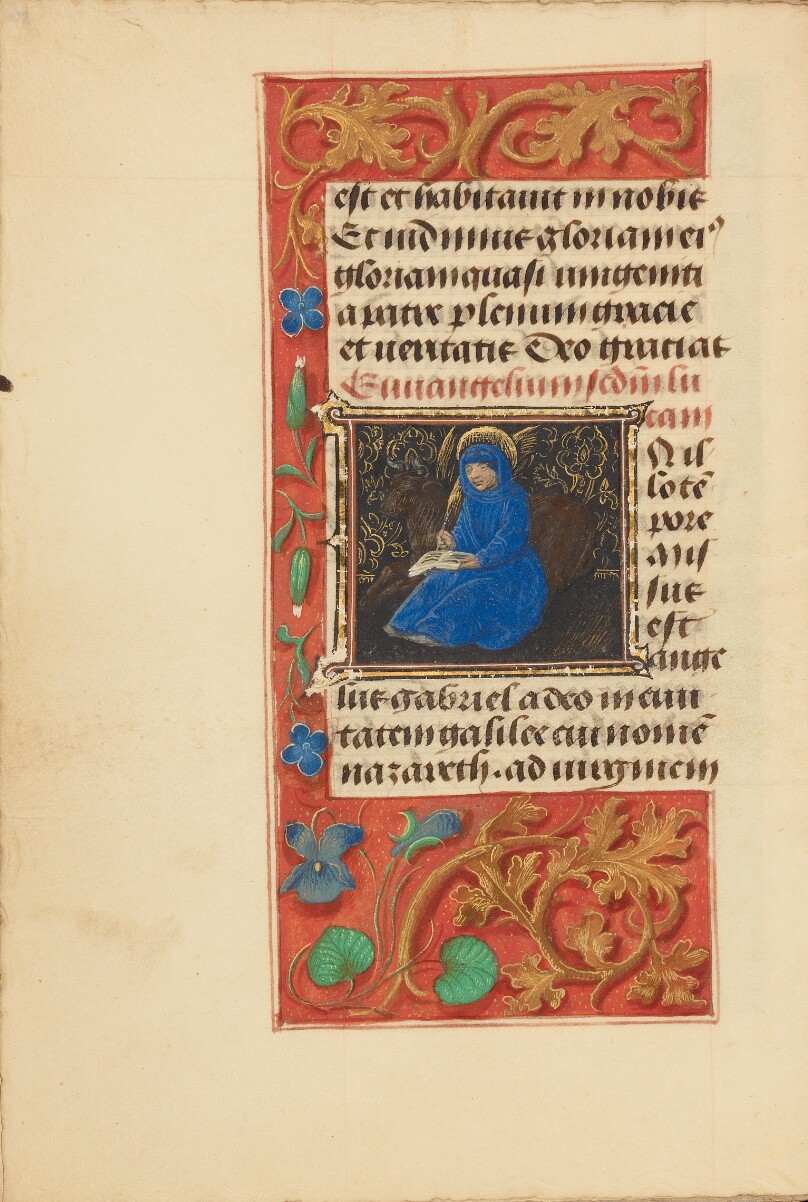 est et habitauit in nobis
Et uidimus gloriam ei⁹
gloriam quasi unigeniti
a patre plenum gracie
et ueritatis Deo gracias
Euuangelium scdm̄ lu
cam
In il
lo tēpore
mis
sus
est
ange
lus gabriel a deo in ciui
tatem galilee cui nomē
nazareth. ad uirginem